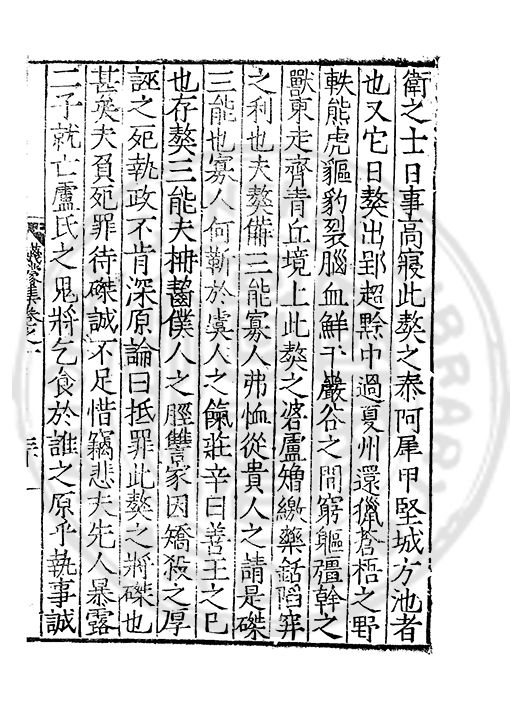 衛之士日事高寢此獒之泰阿犀甲堅城方池者
也又它日獒出郢超黔中過夏州還獵蒼梧之野
軼熊虎貙豹裂腦血鮮于巖谷之間窮軀殭幹之
獸東走齊青丘境上此獒之砮盧矰繳藥銛陷穽
之利也夫獒備三能寡人弗恤從貴人之請是磔
三能也寡人何靳於虞人之餼莊辛曰善王之已
也存獒三能夫柟嚙僕人之脛讐家因矯殺之厚
誣之死執政不肯深原論曰抵罪此獒之將磔也
甚矣夫負死罪待磔誠不足惜竊悲夫先人暴露
二子就亡盧氏之鬼將乞食於誰之原乎執事誠
集卷之